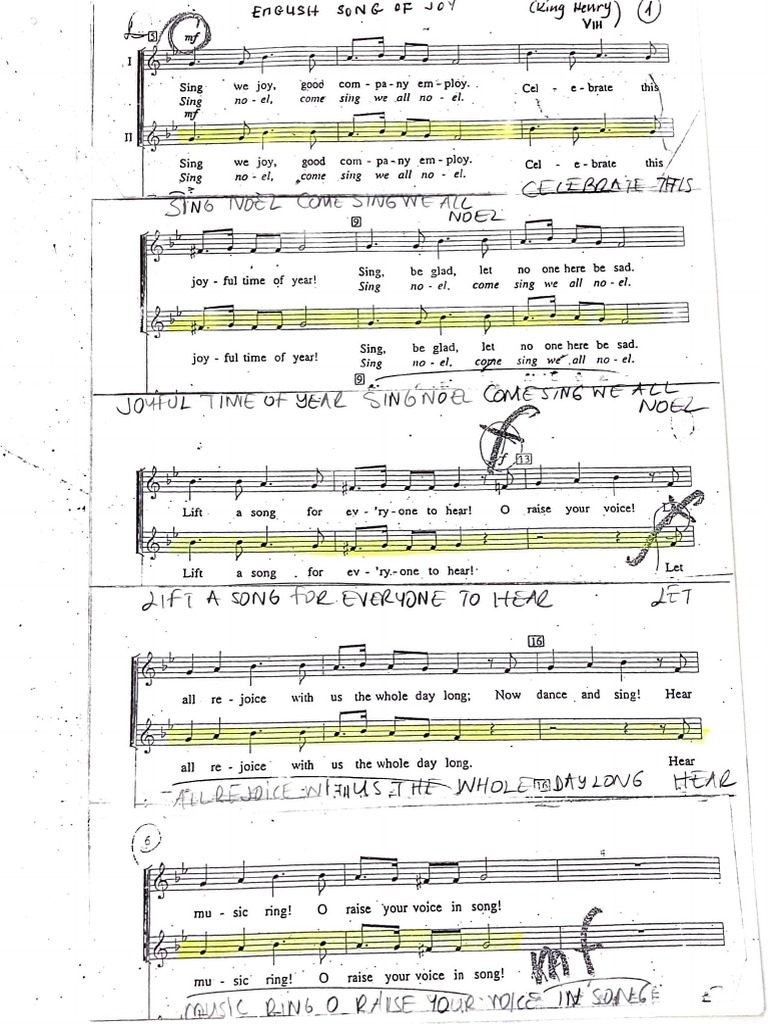 ENGLISH SONG OF JOY (King Henry) 1
VIII
5 mf
I
Sing we joy, good com - pa - ny em - ploy. Cel - e - brate this
Sing no - el, come sing we all no - el.
mf
II
Sing we joy, good com - pa - ny em - ploy. Cel - e - brate this
Sing no - el, come sing we all no - el.
CELEBRATE THIS
SING NOEL COME SING WE ALL
NOEL
9
joy - ful time of year! Sing, be glad, let no one here be sad.
Sing no - el. come sing we all no - el.
joy - ful time of year! Sing, be glad, let no one here be sad.
Sing no - el. come sing we all no - el.
9
JOYFUL TIME OF YEAR SING NOEL COME SING WE ALL
NOEL
f
f 13
Lift a song for ev - 'ry - one to hear! O raise your voice!
f
Lift a song for ev - 'ry - one to hear! Let
LIFT A SONG FOR EVERYONE TO HEAR LET
16
all re - joice with us the whole day long; Now dance and sing! Hear
all re - joice with us the whole day long. Hear
16
ALL REJOICE WITH US THE WHOLE DAY LONG HEAR
6
mu - sic ring! O raise your voice in song!
f
mu - sic ring! O raise your voice in song!
MUSIC RING O RAISE YOUR VOICE IN SONG